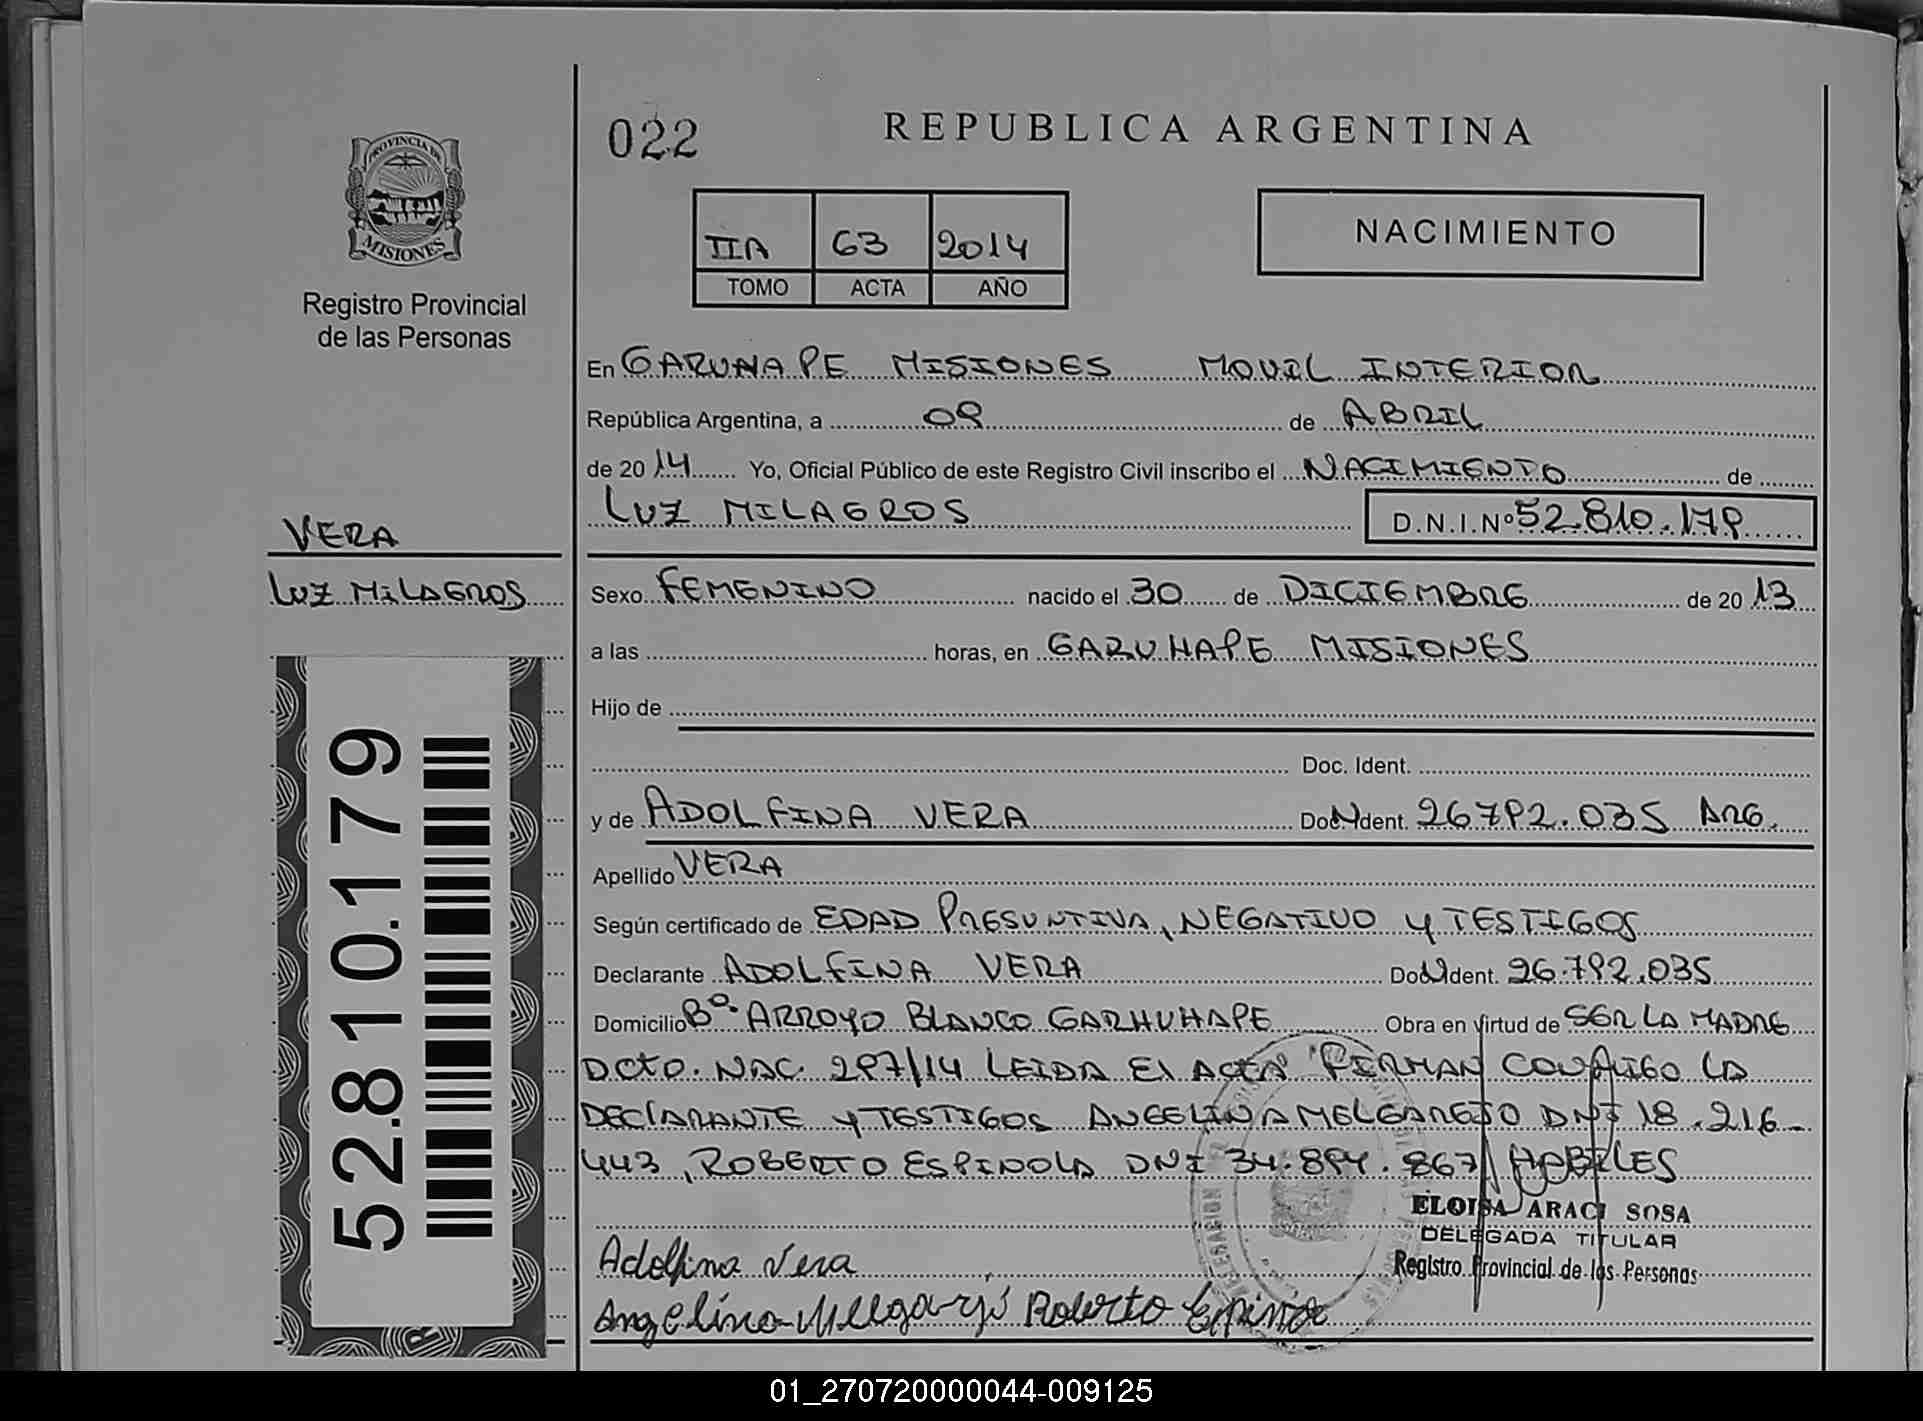 022
REPUBLICA ARGENTINA
PROVINCIA DE
MISIONES
Registro Provincial
de las Personas
IIA 63 2014
TOMO ACTA AÑO
NACIMIENTO
En GARUHAPE MISIONES MOVIL INTERIOR
República Argentina, a 09 de ABRIL
de 2014 Yo, Oficial Público de este Registro Civil inscribo el NACIMIENTO de
LUZ MILAGROS D.N.I.Nº 52.810.179
VERA
LUZ MILAGROS
Sexo FEMENINO nacido el 30 de DICIEMBRE de 2013
a las horas, en GARUHAPE MISIONES
Hijo de
Doc. Ident.
y de ADOLFINA VERA Doc. Ident. 26792.035 ARG.
Apellido VERA
Según certificado de EDAD PRESUNTIVA, NEGATIVO Y TESTIGOS
Declarante ADOLFINA VERA Doc. Ident. 26.792.035
Domicilio Bº ARROYO BLANCO GARHUHAPE Obra en virtud de SER LA MADRE
DCTO. NAC. 297/14 LEIDA EL ACTA FIRMAN CONMIGO LA
DECLARANTE Y TESTIGOS ANGELINA MELGAREJO DNI 18.216-
443, ROBERTO ESPINOLA DNI 34.894.867 HABILES
ELOISA ARACI SOSA
DELEGADA TITULAR
Registro Provincial de las Personas
Adolfina Vera
Angelina Melgarejo Roberto Espinola
52.810.179
01_270720000044-009125